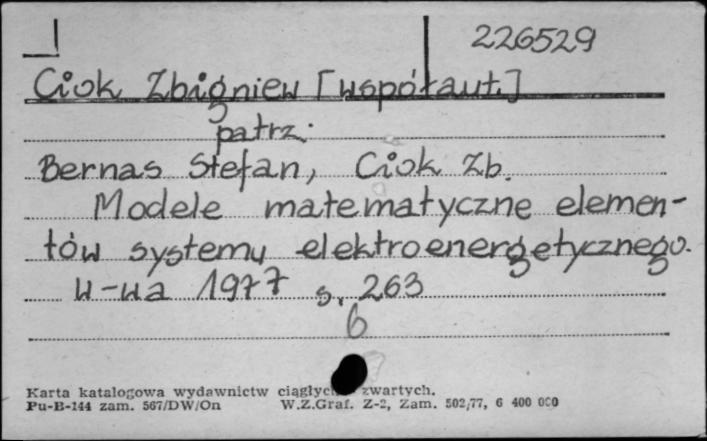 226529
Ciok Zbigniew [współaut.]
patrz.
Bernas Stefan, Ciok Zb.
Modele matematyczne elemen-
tów systemu elektroenergetycznego.
W-wa 1977 s. 263
6
Karta katalogowa wydawnictw zwartych.
Pu-B-144 zam. 567/DW/On W.Z.Graf. Z-2, Zam. 502/77, 6 400 000